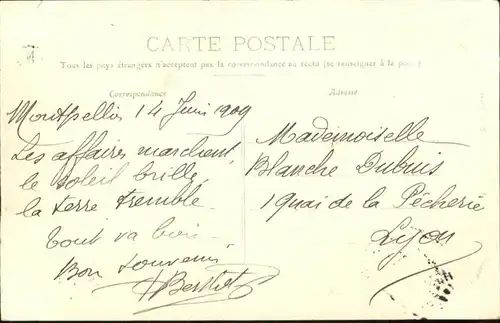 CARTE POSTALE
Tous les pays étrangers n'acceptent pas la correspondance au recto (se renseigner à la poste)
Correspondance
Adresse
Montpellier 14 Juin 1909
Les affaires marchent,
le soleil brille
la terre tremble
tout va bien
Bon souvenir
Berthot
Mademoiselle
Blanche Dubuis
1 Quai de la Pêcherie
Lyon